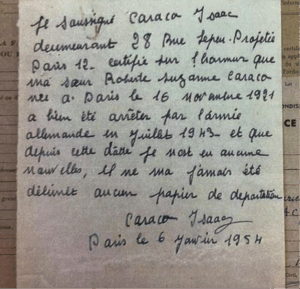 Je soussigné Caraco Isaac
demeurant 28 Rue Projetée
Paris 12. certifie sur l'honneur que
ma sœur Roberte Suzanne Caraco
nee a. Paris le 16 novembre 1921
a bien été arreter par l'armée
allemande en juillet 1943 et que
depuis cette date Je nost en aucune
nouvelles, il ne ma jamais été
délivret aucun papier de deportation
Caraco Isaac
Paris le 6 Janvier 1954